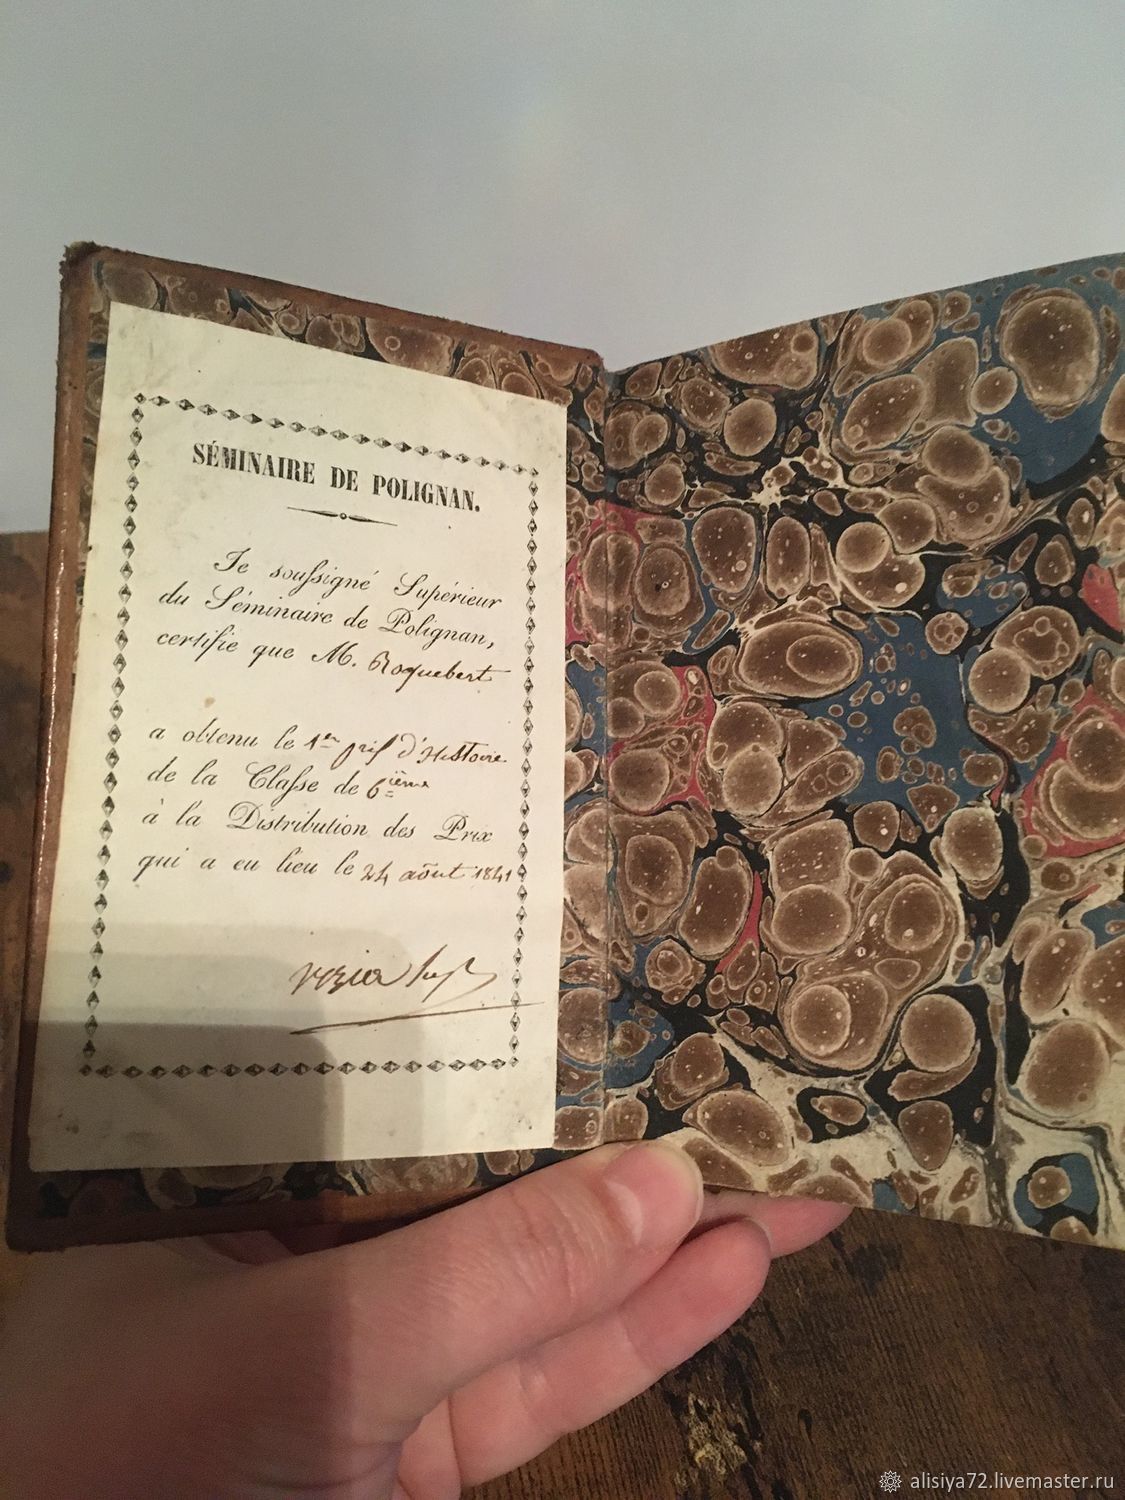 SÉMINAIRE DE POLIGNAN.
Je soussigné Supérieur
du Séminaire de Polignan,
certifie que M. Roquebert
a obtenu le 1er prix d'Histoire
de la Classe de 6ième
à la Distribution des Prix
qui a eu lieu le 24 août 1841
alisiya72.livemaster.ru